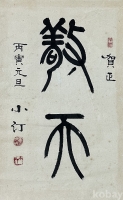 賀正
敬天
丙寅元旦
小汀
kobay